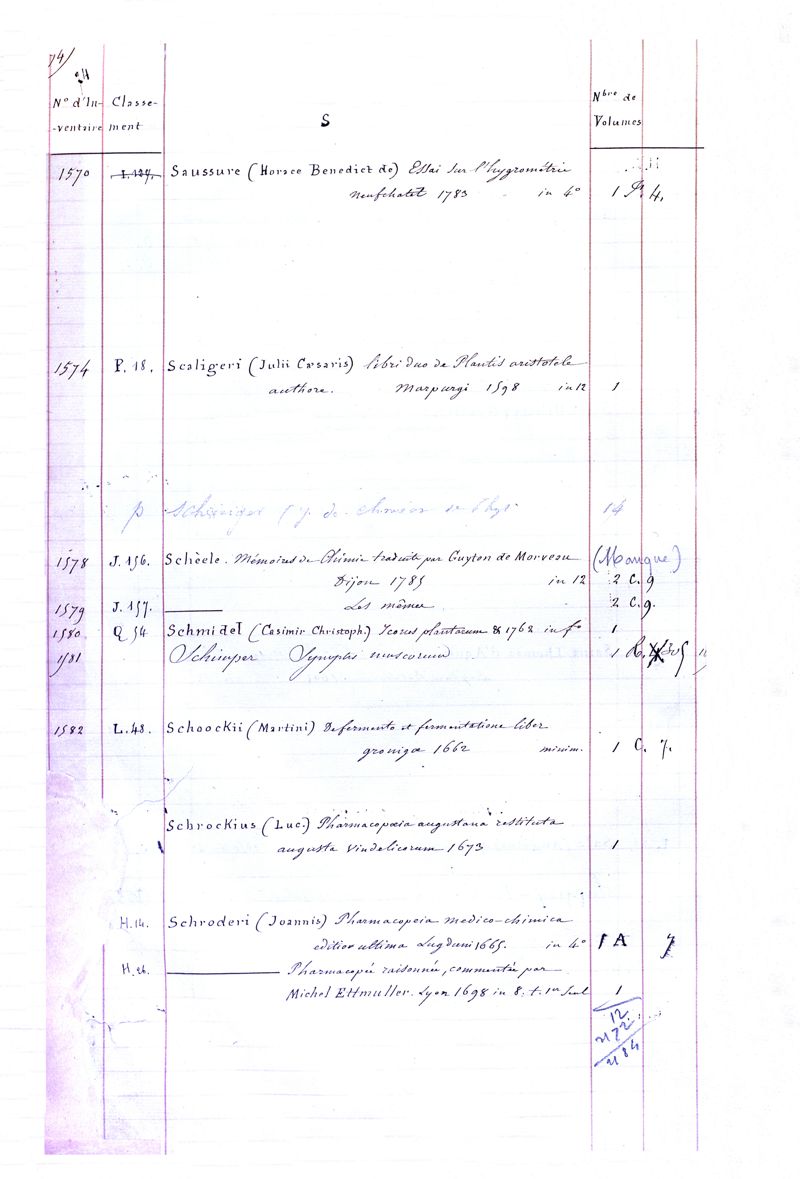 74)
24
N° d'In- Classe- Nbre de
-ventaire ment S Volumes
1570 I.137. Saussure (Horace Benedict de) Essai sur l'hygrométrie
neufchatel 1783 in 4° 1 P. 4.
1574 P. 18. Scaligeri (Julii Cæsaris) libri duo de Plantis aristotele
authore. Marpurgi 1598 in 12 1
p de chimie 14
1578 J. 156. Schèele. Mémoires de Chimie traduits par Guyton de Morveau (Manque)
Dijon 1785 in 12 2 C. 9
1579 J. 157. Les mêmes 2 C. 9.
1580. Q 54 Schmidel (Casimir Christoph.) Icones plantarum & 1762 in f° 1
1581 Schimper Synopsis muscorum 1 R.
1582 L. 48. Schoockii (Martini) De fermento et fermentatione liber
groningæ 1662 minim. 1 C. 7.
Schrockius (Luc.) Pharmacopœia augustana restituta
augusta vindelicorum 1673 1
H.14. Schroderi (Joannis) Pharmacopeia medico-chimica
editior ultima Lugduni 1665. in 4° 1 A 7
H. 26. Pharmacopée raisonnée, commentée par
Michel Ettmuller. Lyon 1698 in 8. t. 1er seul 1
12
2172
2184